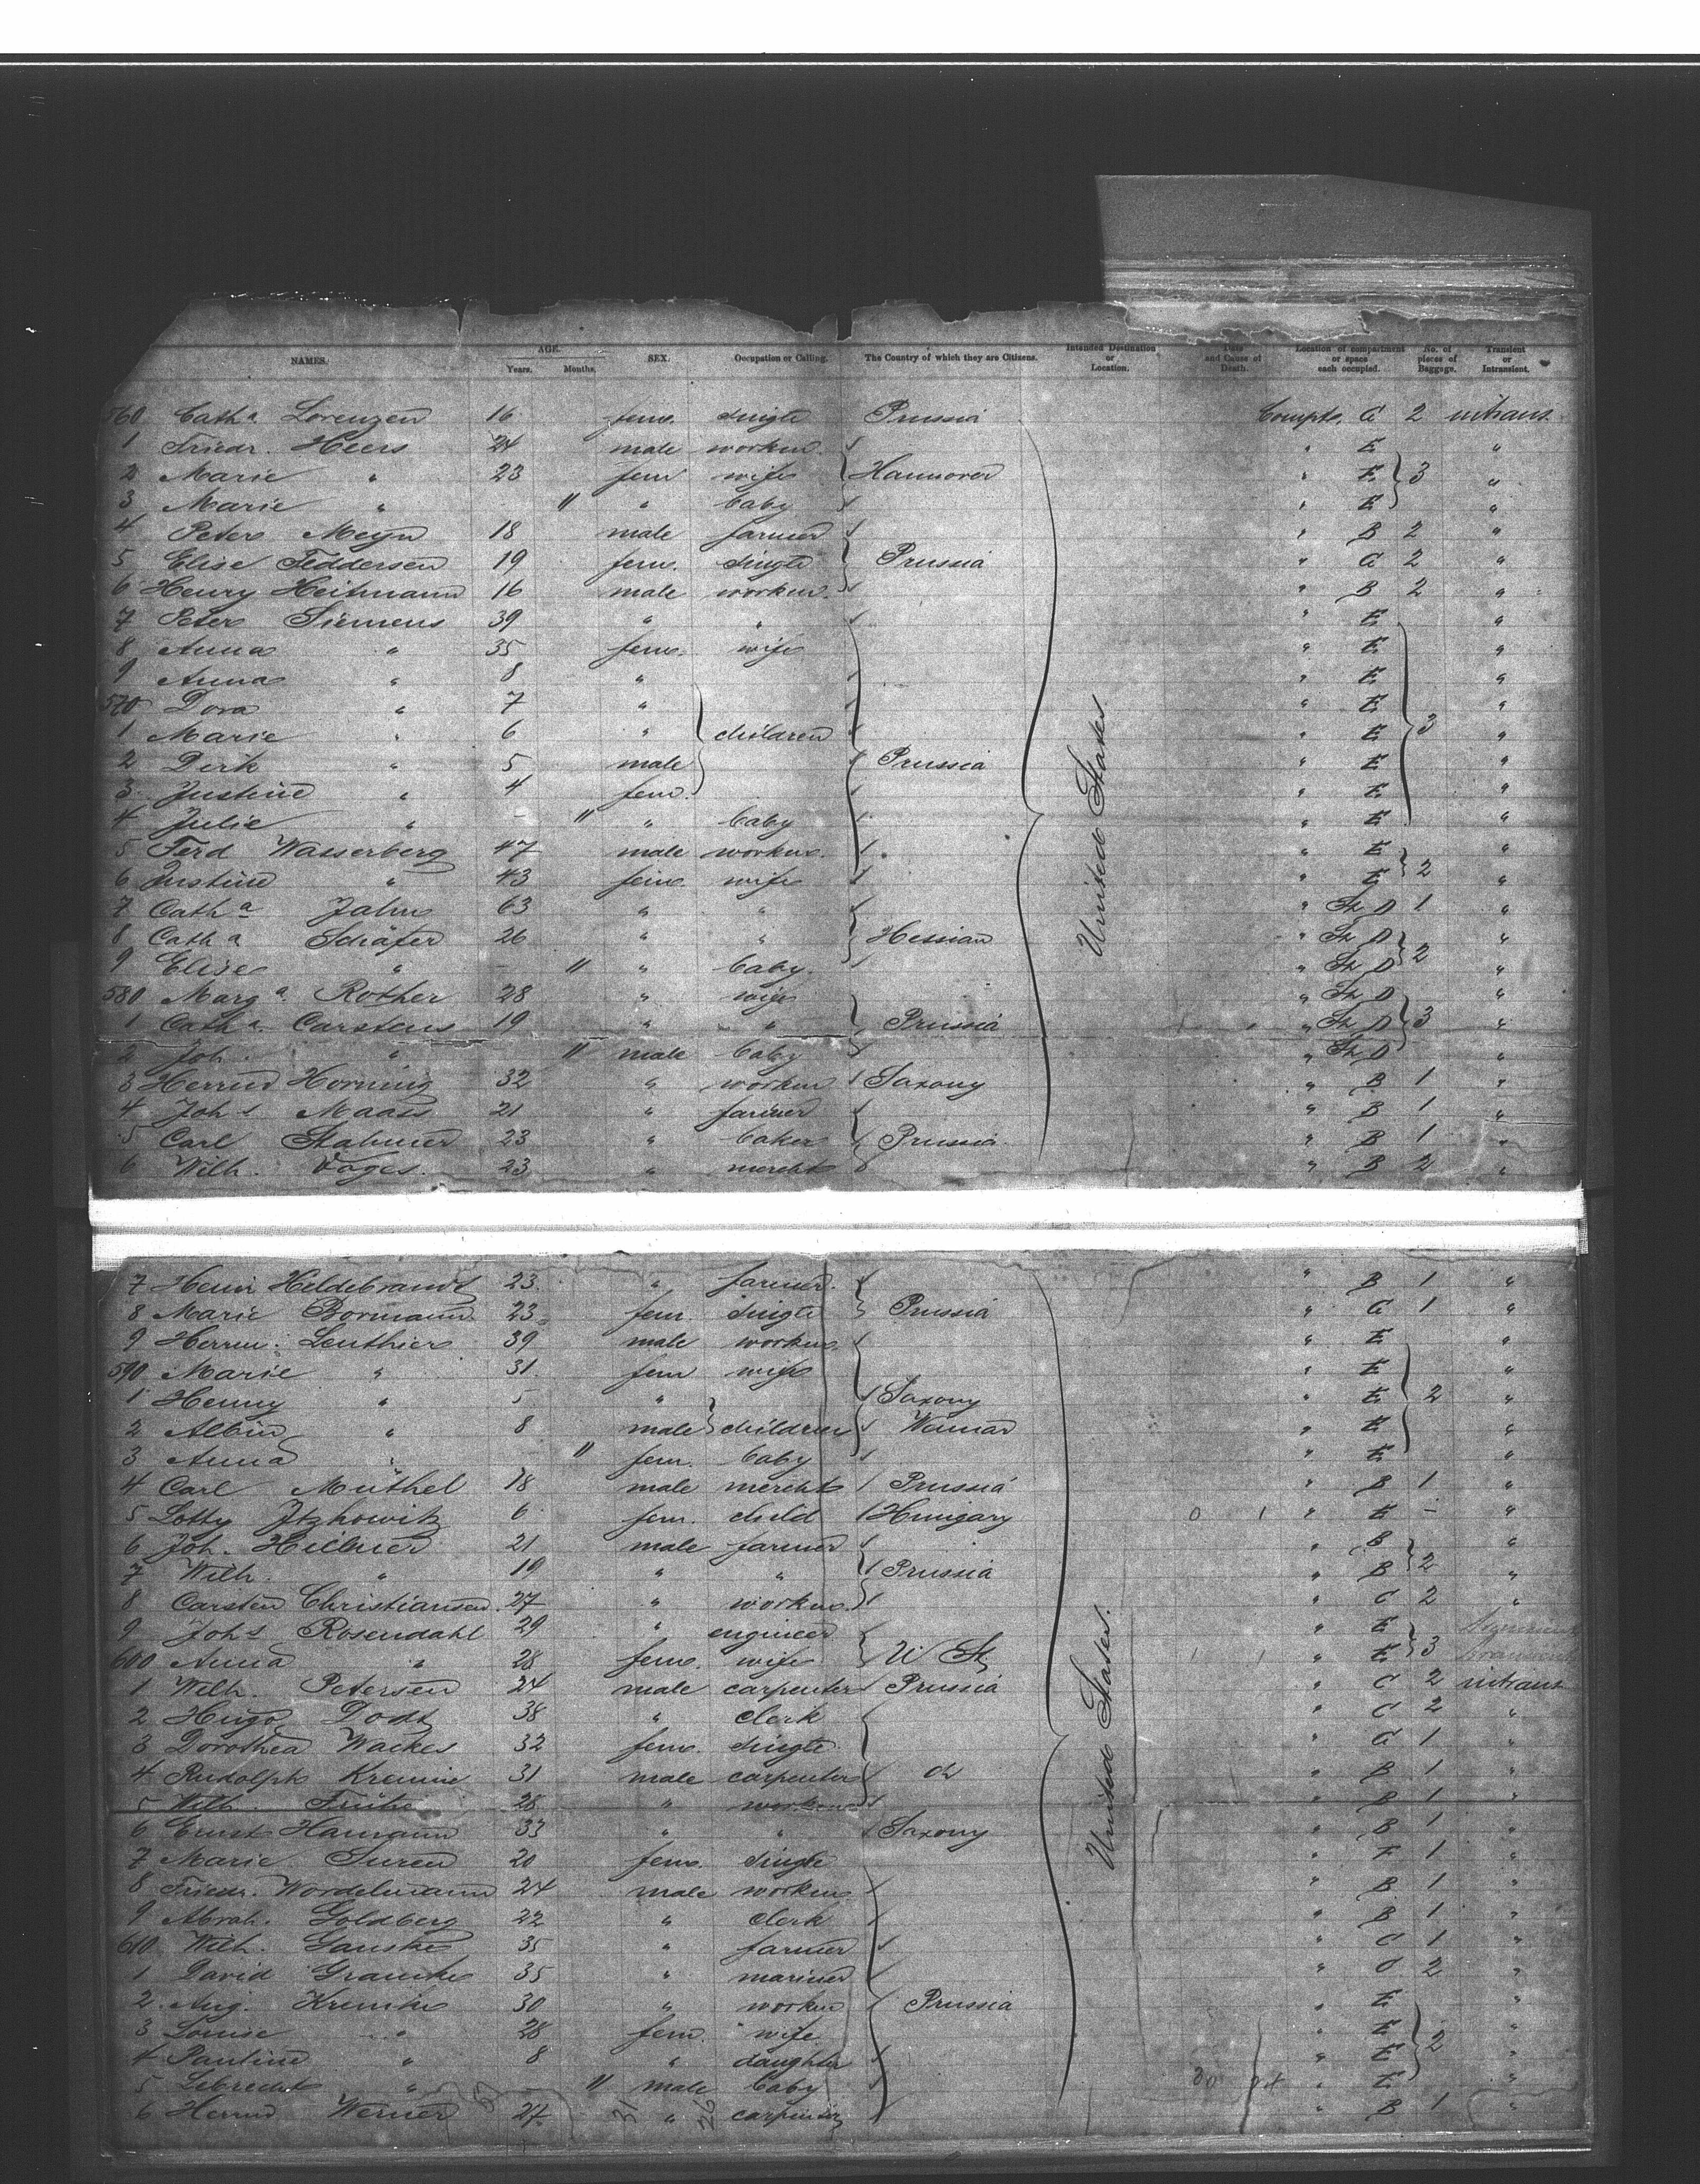 NAMES. AGE. Years. Months. SEX. Occupation or Calling. The Country of which they are Citizens. Intended Destination or Location. Date and Cause of Death. Location of compartment or space each occupied. No. of pieces of Baggage. Transient or Intransient.
560 Cath a Lorenzen 16 fem. single Prussia Compt. C 2 intrans
1 Friedr. Heers 24 male workm. " E "
2 Marie " 23 fem wife Hannover " E 3 "
3 Marie " 11 " baby " E "
4 Peter Meyn 18 male farmer " B 2 "
5 Elise Feddersen 19 fem. single Prussia " C 2 "
6 Henry Heitmann 16 male workm. " B 2 "
7 Peter Siemens 39 " " " E "
8 Anna " 35 fem. wife " E "
9 Anna " 8 " " E "
570 Dora " 7 " " E "
1 Marie " 6 " children " E 3 "
2 Dirk " 5 male Prussia " E "
3 Justine " 4 fem. " E "
4 Julie " - 11 " baby " E "
5 Ferd Wasserberg 47 male workm. " E "
6 Justine " 43 fem. wife " E 2 "
7 Cath a Jahn 63 " " " D 1 "
8 Cath a Schäfer 26 " " Hessian " D "
9 Elise " - 11 " baby. " D 2 "
580 Marg a. Rother 28 " wife " D "
1 Cath a. Carstens 19 " " Prussia " D 3 "
2 Joh. " 11 male baby " D "
3 Herrm Hornung 32 " workm Saxony " B 1 "
4 Joh s Maass 21 " farmer " B 1 "
5 Carl 23 " baker Prussia " B 1 "
6 Wilh. Voges. 23 " mercht " B 2 "
United States
7 Heinr Hildebrandt 23. " farmer. " B 1 "
8 Marie Bormann 23 fem. single Prussia " C 1 "
9 Herrm. Leuthier 39 male workm. " E "
590 Marie " 31. fem wife " E "
1 Henny " 5 " Saxony " E 2 "
2 Albin " 8 male children Weimar " E "
3 Anna " 11 fem. baby " E "
4 Carl Müthel 18 male mercht Prussia " B 1 "
5 Lotty Itzkowitz 6 fem. child Hungary 0 1 " E - "
6 Joh. Hillmer 21 male farmer " B "
7 Wilh. " 19 " " Prussia " B 2 "
8 Carsten Christiansen. 27 " workm. " C 2 "
9 Joh s Rosendahl 29 " engineer " E
600 Anna " 28 fem. wife U St 1 1 " E 3
1 Wilh. Petersen 24 male carpenter Prussia " C 2 intrans
2 Hugo Dodt 38 " clerk " C 2 "
3 Dorothea Wackes 32 fem. single " C 1 "
4 Rudolph 31 male carpenter do " B 1 "
5 Wilh. 28 " workm " B 1 "
6 Ernst Hamann 33 " " Saxony " B 1 "
7 Marie Suren 20 fem. single " F 1 "
8 Friedr. Wordelmann 24 male workm. " B 1 "
9 Abrah. Goldberg 22 " clerk " B 1 "
610 Wilh. 35 " farmer " C 1 "
1 David 35 " mariner " C 2 "
2 Aug. 30 " workm Prussia " E "
3 Louise " 28 fem. wife " E "
4 Pauline " 8 " daughter " E 2 "
5 Lebrecht " 11 male baby " E "
6 Herrm Werner 27. " carpenter " B 1 "
United States.